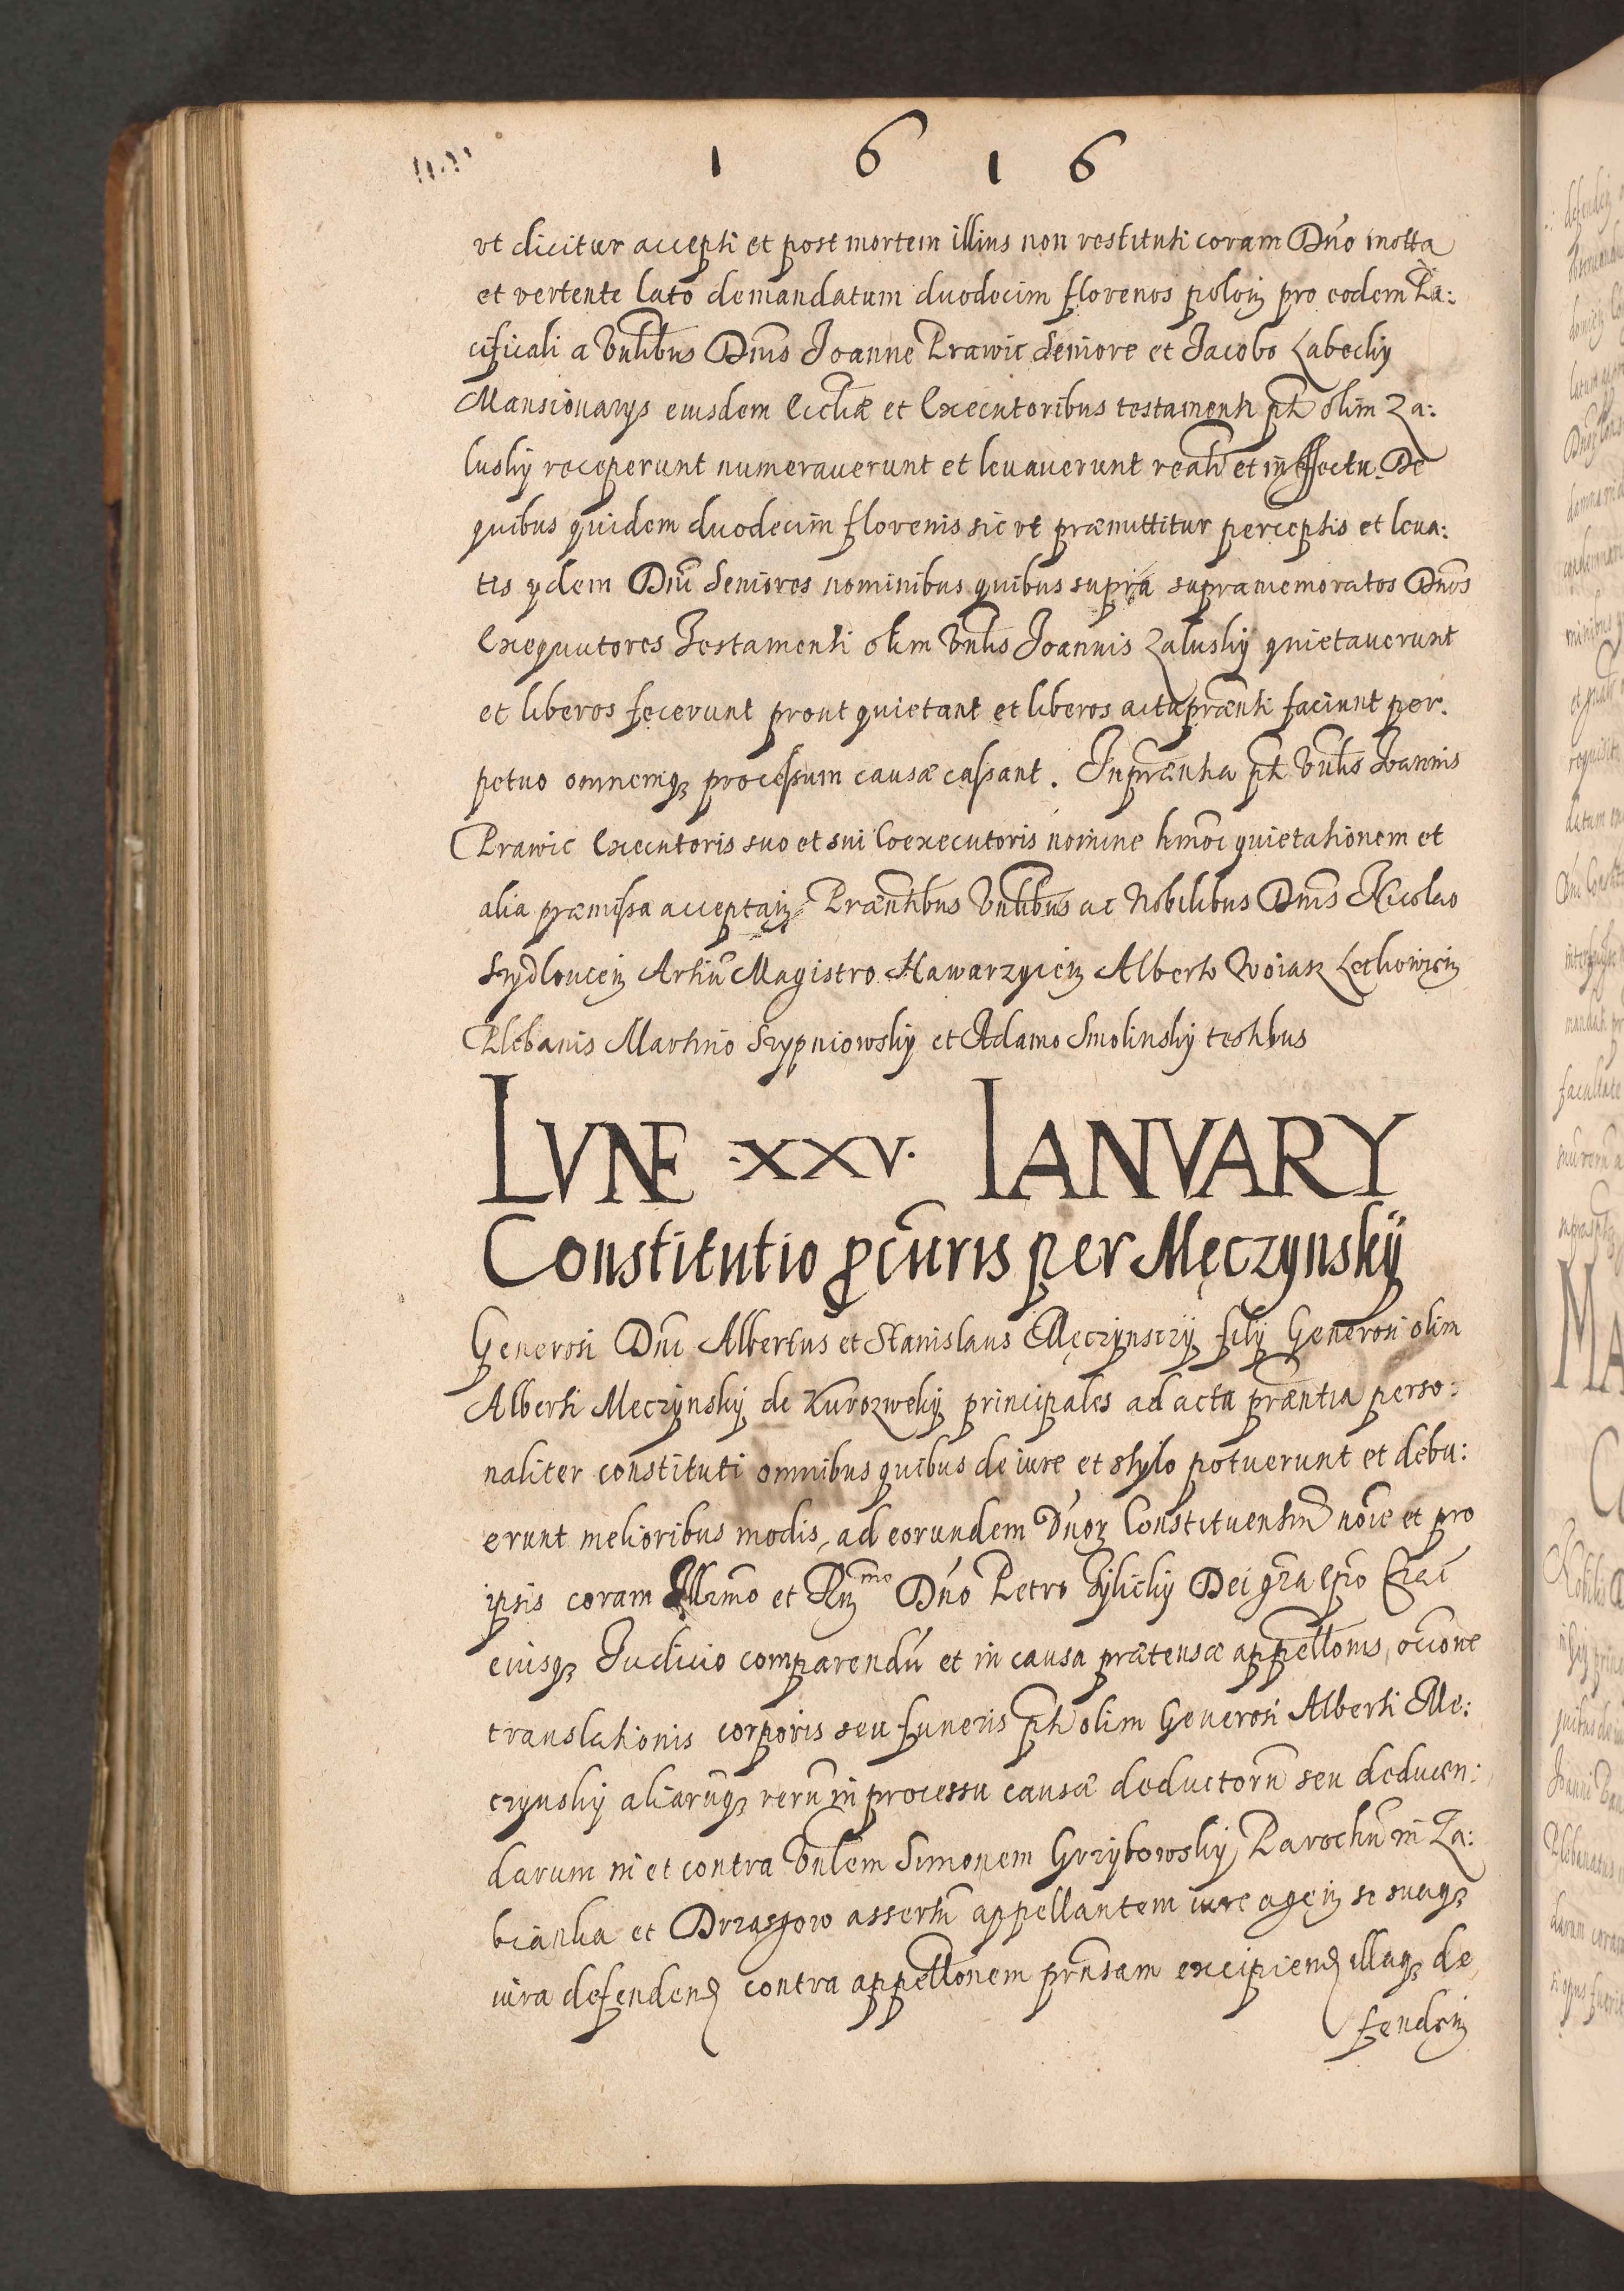 1 6 1 6
vt dicitur accepti et post mortem illius non restituti coram Dno mota
et vertente lato demandatum duodecim florenos polon pro eodem Pa:
cificali a Vnlibus Dnis Joanne Prawic Seniore et Jacobo Labeckij
Mansionarys eiusdem Ecclæ et Executoribus testamenti pti olim Za:
luskij receperunt numerauerunt et leuauerunt realr et in effectu. De
quibus quidem duodecim florenis sic vt præmittitur perceptis et leua:
tis ydem Dni Seniores nominibus quibus supra supramemoratos Dnos
Exequutores Testamenti olim Vnlis Joannis Zaluskij quietauerunt
et liberos fecerunt prout quietant et liberos acta prænti faciunt per.
petuo omnemq processum causæ cassant. In prænha pti Vnlis Joannis
Prawic Executoris suo et sui Coexecutoris nomine hmoi quietationem et
alia præmissa acceptan Præntibus Vnlibus ac Nobilibus Dnis Nicolao
Szydloucen Artiu Magistro Hawarzycien Alberto Woiasz Lechowicin
Plebanis Martino Szypniowskij et Adamo Smolinskij testibus
LVNE .XXV. IANVARY
Constitutio pcuris per Męczynskij
Generosi Dni Albertus et Stanislaus Męczynsczÿ filij Generosi olim
Alberti Meczÿnskij de Kurozwekij principales ad acta præntia perso:
naliter constituti omnibus quibus de iure et stylo potuerunt et debu:
erunt melioribus modis, ad eorundem Dnor Constituentiu noie et pro
ipsis coram Illrmo et Rmo Dno Petro Tÿlickij Dei gra Epo Crac
eiusq Judicio comparendu et in causa prætensæ appellonis, occone
translationis corporis seu funeris pti olim Generosi Alberti Me:
czynskij aliaruq reru in processu causæ deductoru seu deducen:
darum in et contra Vnlem Simonem Grzÿbowskij Parochu in Za:
bianka et Drzasgow assertu appellantem iure agen se suaq
iura defenden contra appellonem prnsam excipien illaq de
fenden